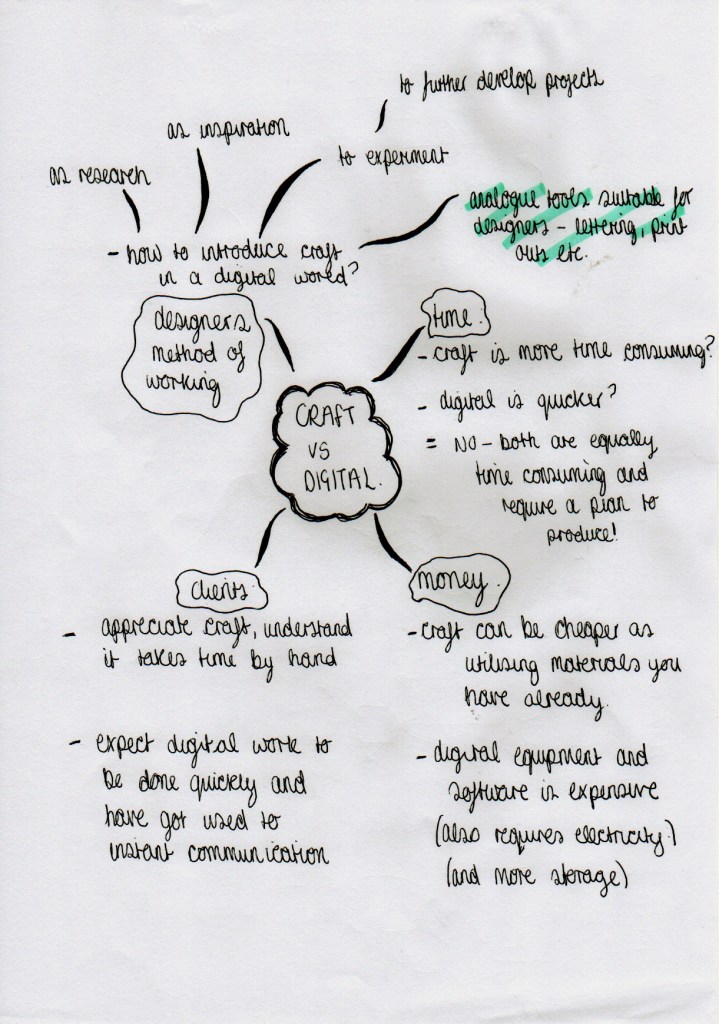 to further develop projects
as inspiration
to experiment
as research
analogue tools suitable for
designers - lettering, print
outs etc.
- how to introduce craft
in a digital world?
designers
method of
working
time.
- craft is more time consuming?
- digital is quicker?
= NO - both are equally
time consuming and
require a plan to
produce!
CRAFT
VS
DIGITAL.
clients.
- appreciate craft, understand
it takes time by hand
- expect digital work to
be done quickly and
have got used to
instant communication
money.
- craft can be cheaper as
utilising materials you
have already.
- digital equipment and
software is expensive
(also requires electricity!)
(and more storage)